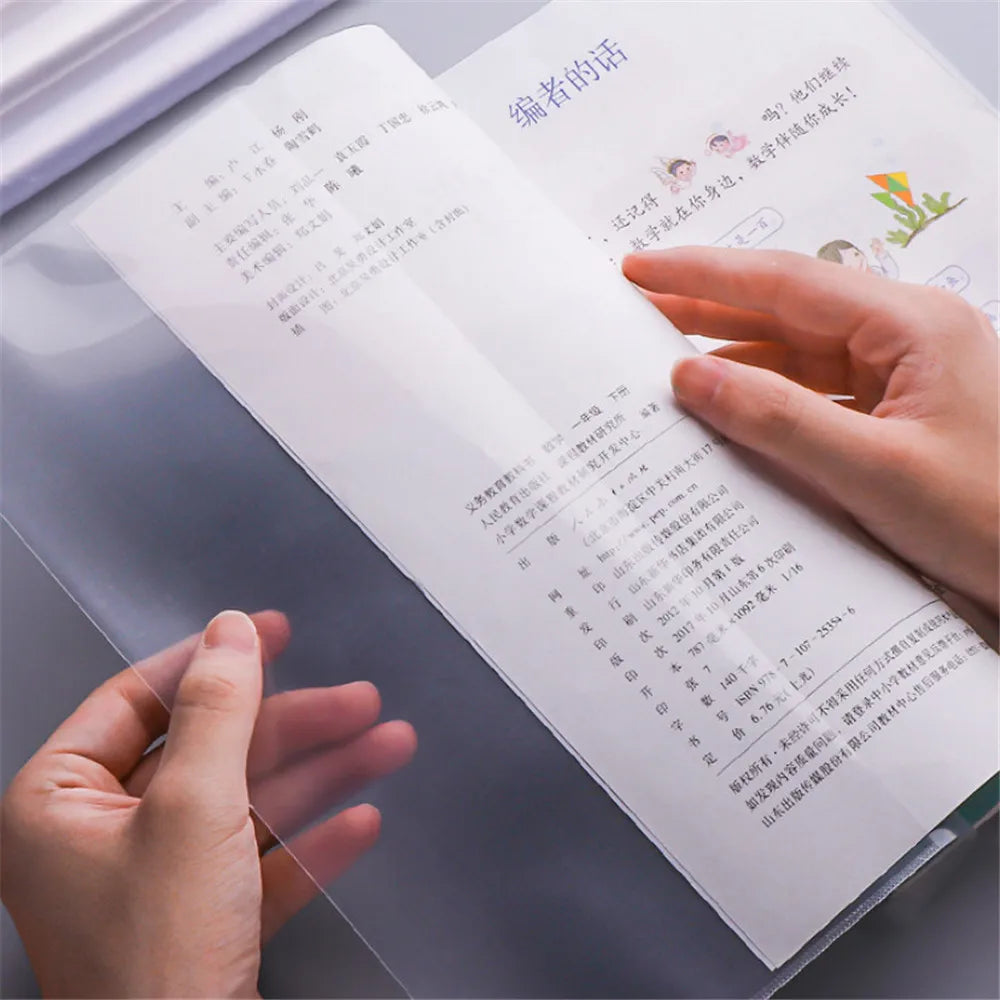 主 编：卢 江 杨 刚
副主编：王永春 陶雪鹤
主要编写人员：刘品一 袁玉霞 丁国忠
责任编辑：张 华 陈 曦
美术编辑：郑文娟
封面设计：吕 旻 郑文娟
版面设计：北京吴勇设计工作室
插 图：北京吴勇设计工作室（含封面）
义务教育教科书 数学 一年级 下册
人民教育出版社 课程教材研究所 编著
小学数学课程教材研究开发中心
出 版
（北京市海淀区中关村南大街17号
网 址 http://www.pep.com.cn
重 印 山东出版传媒股份有限公司
发 行 山东新华书店集团有限公司
印 刷 山东新华印务有限责任公司
版 次 2012年10月第1版
印 次 2017年10月山东第6次印刷
开 本 787毫米×1092毫米 1/16
印 张 7
字 数 140千字
书 号 ISBN 978-7-107-25354-6
定 价 6.76元（上光）
版权所有·未经许可不得采用任何方式擅自复制或使用
如发现内容质量问题，请登录中小学教材意见反馈平台：
山东出版传媒股份有限公司教材中心售后服务电话：
编者的话
吗？他们继续
数学伴随你成长！
还记得
数学就在你身边，
是一百